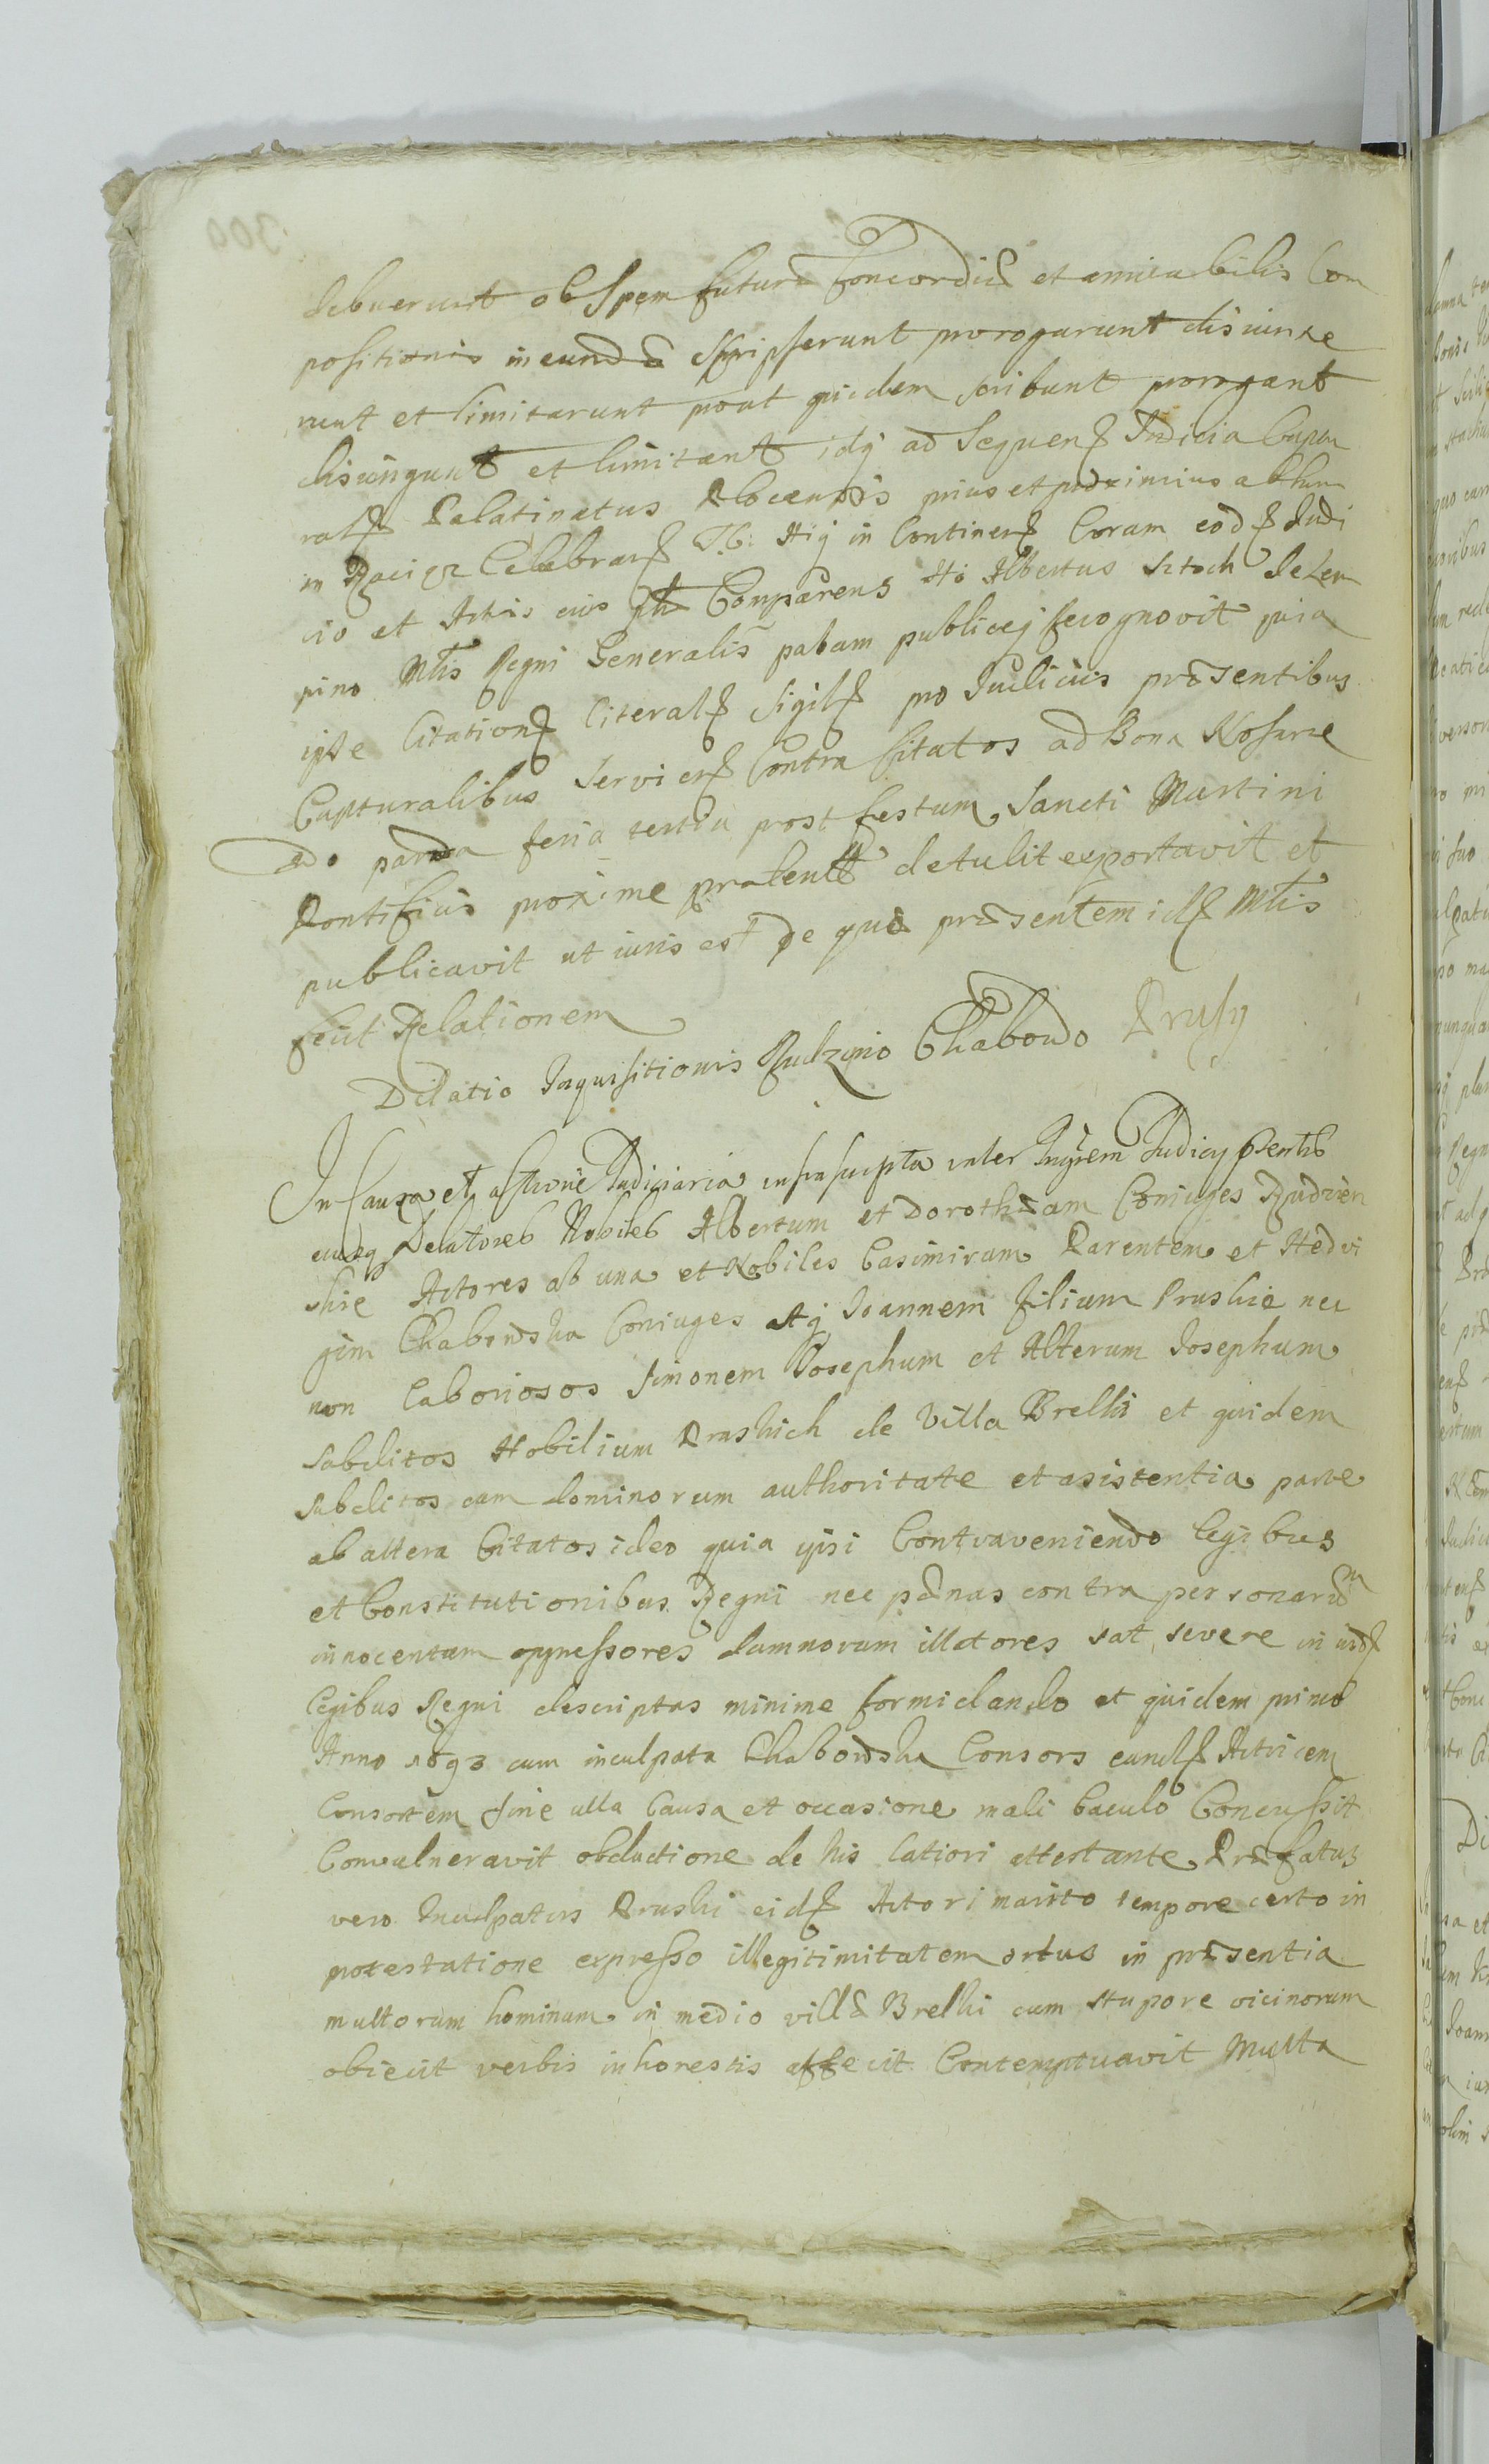 debuerunt ob Spem futuræ Concordiæ et amicabilis Com
positionis ineundæ scripserunt prorogarunt disiunxe
runt et limitarunt prout quidem scribunt prorogant
disiungunt et limitant idq ad Sequen Iudicia Captu
ral Palatinatus Plocensis prius et proximius
in Raciąż Celebran in Continen Coram eod Iudi
cio et Actis eius Comparens Albertus de Len
pino Mtis Regni Generalis palam publiceq recognovit quia
ipse Citation literal Sigil pro Iudiciis præsentibus
Capturalibus Servien Contra Citatos ad Bona
do parva feria tertia post festum Sancti Martini
Pontificis proxime præterit detulit exportavit et
publicavit ut iuris est de quo præsentem id Mtis
fecit Relationem
Dilatio Inquisitionis Chabowo Prusy
In Causa et actione Iudiciaria infrascripta inter Iudicy
eiusq Delatores Nobiles Albertum et Dorothæam Coniuges
skie Actores ab una et Nobiles Casimirum Parentem et Hedvi
gim Chabowska Coniuges atq Ioannem filium Pruskie nec
non laboriosos Simonem Iosephum et Alterum Iosephum
Subditos Nobilium Pruskich de Villa Brelki et quidem
subditos cum dominorum authoritate et asistentia parte
ab altera Citatos ideo quia ipsi Contraveniendo legibus
et Constitutionibus Regni nec pænas contra personarum
innocentum oppressores damnorum illatores sat severe in iisd
legibus Regni descriptas minime formidando et quidem primo
Anno 1693 cum inculpata Chabowska Consors eand Actricem
Consortem sine ulla Causa et occasione mali baculo Concussit
Convulneravit obductione de his latiori attestante Præfatus
vero Inculpatus Pruski eid Actori marito tempore certo in
protestatione expresso illegitimitatem ortus in præsentia
multorum hominum in medio villæ Brelki cum stupore vicinorum
obiecit verbis inhonestis affecit Contemptuavit Multa